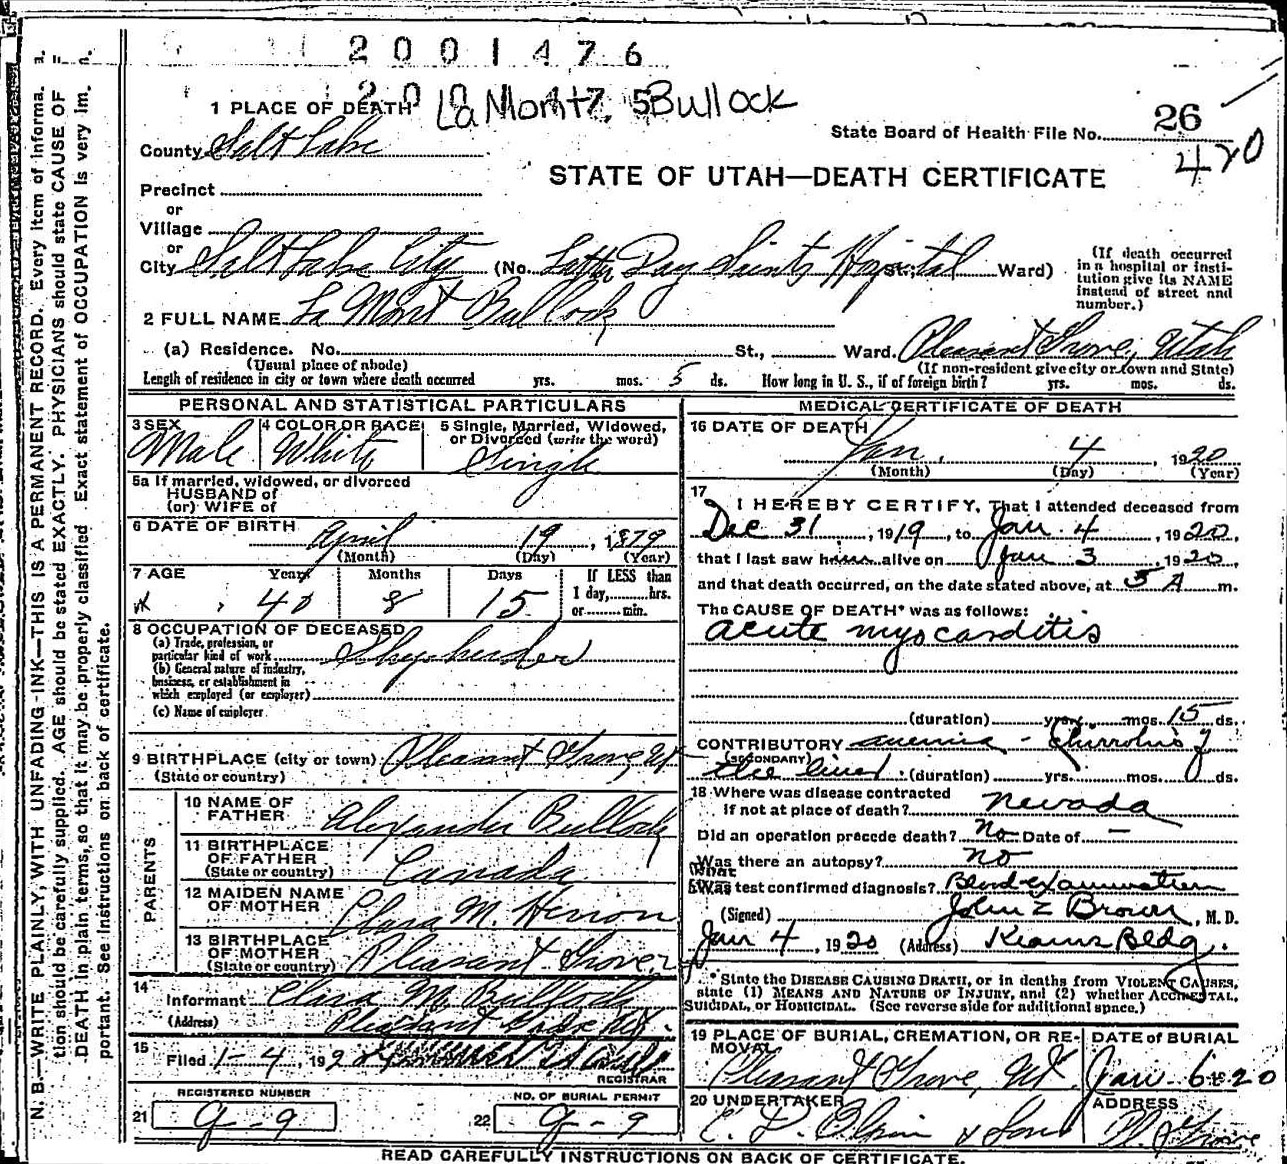 2001476
La Montz. Bullock
1 PLACE OF DEATH
State Board of Health File No. 26
420
County Salt Lake
STATE OF UTAH—DEATH CERTIFICATE
Precinct
or
Village
or
City Salt Lake City (No. Latter Day Saints Hospital St., Ward)
(If death occurred in a hospital or institution give its NAME instead of street and number.)
2 FULL NAME La Mont Bullock
(a) Residence. No. St., Ward. Pleasant Grove, Utah
(Usual place of abode) (If non-resident give city or town and State)
Length of residence in city or town where death occurred yrs. mos. 5 ds. How long in U. S., if of foreign birth? yrs. mos. ds.
PERSONAL AND STATISTICAL PARTICULARS
3 SEX Male
4 COLOR OR RACE White
5 Single, Married, Widowed, or Divorced (write the word) Single
5a If married, widowed, or divorced
HUSBAND of
(or) WIFE of
6 DATE OF BIRTH April 19, 1879
(Month) (Day) (Year)
7 AGE Years Months Days If LESS than
40 8 15 1 day, hrs.
or min.
8 OCCUPATION OF DECEASED
(a) Trade, profession, or
particular kind of work Shepherder
(b) General nature of industry,
business, or establishment in
which employed (or employer)
(c) Name of employer
9 BIRTHPLACE (city or town) Pleasant Grove, Ut
(State or country)
PARENTS
10 NAME OF FATHER Alexander Bullock
11 BIRTHPLACE OF FATHER (State or country) Canada
12 MAIDEN NAME OF MOTHER Clara M. Herron
13 BIRTHPLACE OF MOTHER (State or country) Pleasant Grove
14
Informant Clara M. Bullock
(Address) Pleasant Grove Ut.
15
Filed 1-4, 192
REGISTRAR
REGISTERED NUMBER
21 G-9
NO. OF BURIAL PERMIT
22 G-9
MEDICAL CERTIFICATE OF DEATH
16 DATE OF DEATH
Jan. 4, 1920
(Month) (Day) (Year)
17 I HEREBY CERTIFY, That I attended deceased from
Dec 31, 1919, to Jan. 4, 1920,
that I last saw him alive on Jan 3 1920,
and that death occurred, on the date stated above, at 5 A m.
The CAUSE OF DEATH* was as follows:
acute myocarditis
(duration) yrs. mos. 15 ds.
CONTRIBUTORY anemia - Chirrohis of
(SECONDARY)
the liver (duration) yrs. mos. ds.
18 Where was disease contracted
if not at place of death? nevada
Did an operation precede death? No Date of —
Was there an autopsy? no
What test confirmed diagnosis? Blood examination
(Signed) John Z Brown, M. D.
Jan 4, 1920 (Address) Kearns Bldg.
*State the DISEASE CAUSING DEATH, or in deaths from VIOLENT CAUSES,
state (1) MEANS AND NATURE OF INJURY, and (2) whether ACCIDENTAL,
SUICIDAL, or HOMICIDAL. (See reverse side for additional space.)
19 PLACE OF BURIAL, CREMATION, OR REMOVAL
Pleasant Grove, Ut.
DATE OF BURIAL
Jan. 6 1920
20 UNDERTAKER
& Sons
ADDRESS
Pl Grove
READ CAREFULLY INSTRUCTIONS ON BACK OF CERTIFICATE.
N. B.—WRITE PLAINLY, WITH UNFADING INK—THIS IS A PERMANENT RECORD. Every item of informa-
tion should be carefully supplied. AGE should be stated EXACTLY. PHYSICIANS should state CAUSE OF
DEATH in plain terms, so that it may be properly classified. Exact statement of OCCUPATION is very im-
portant. See instructions on back of certificate.